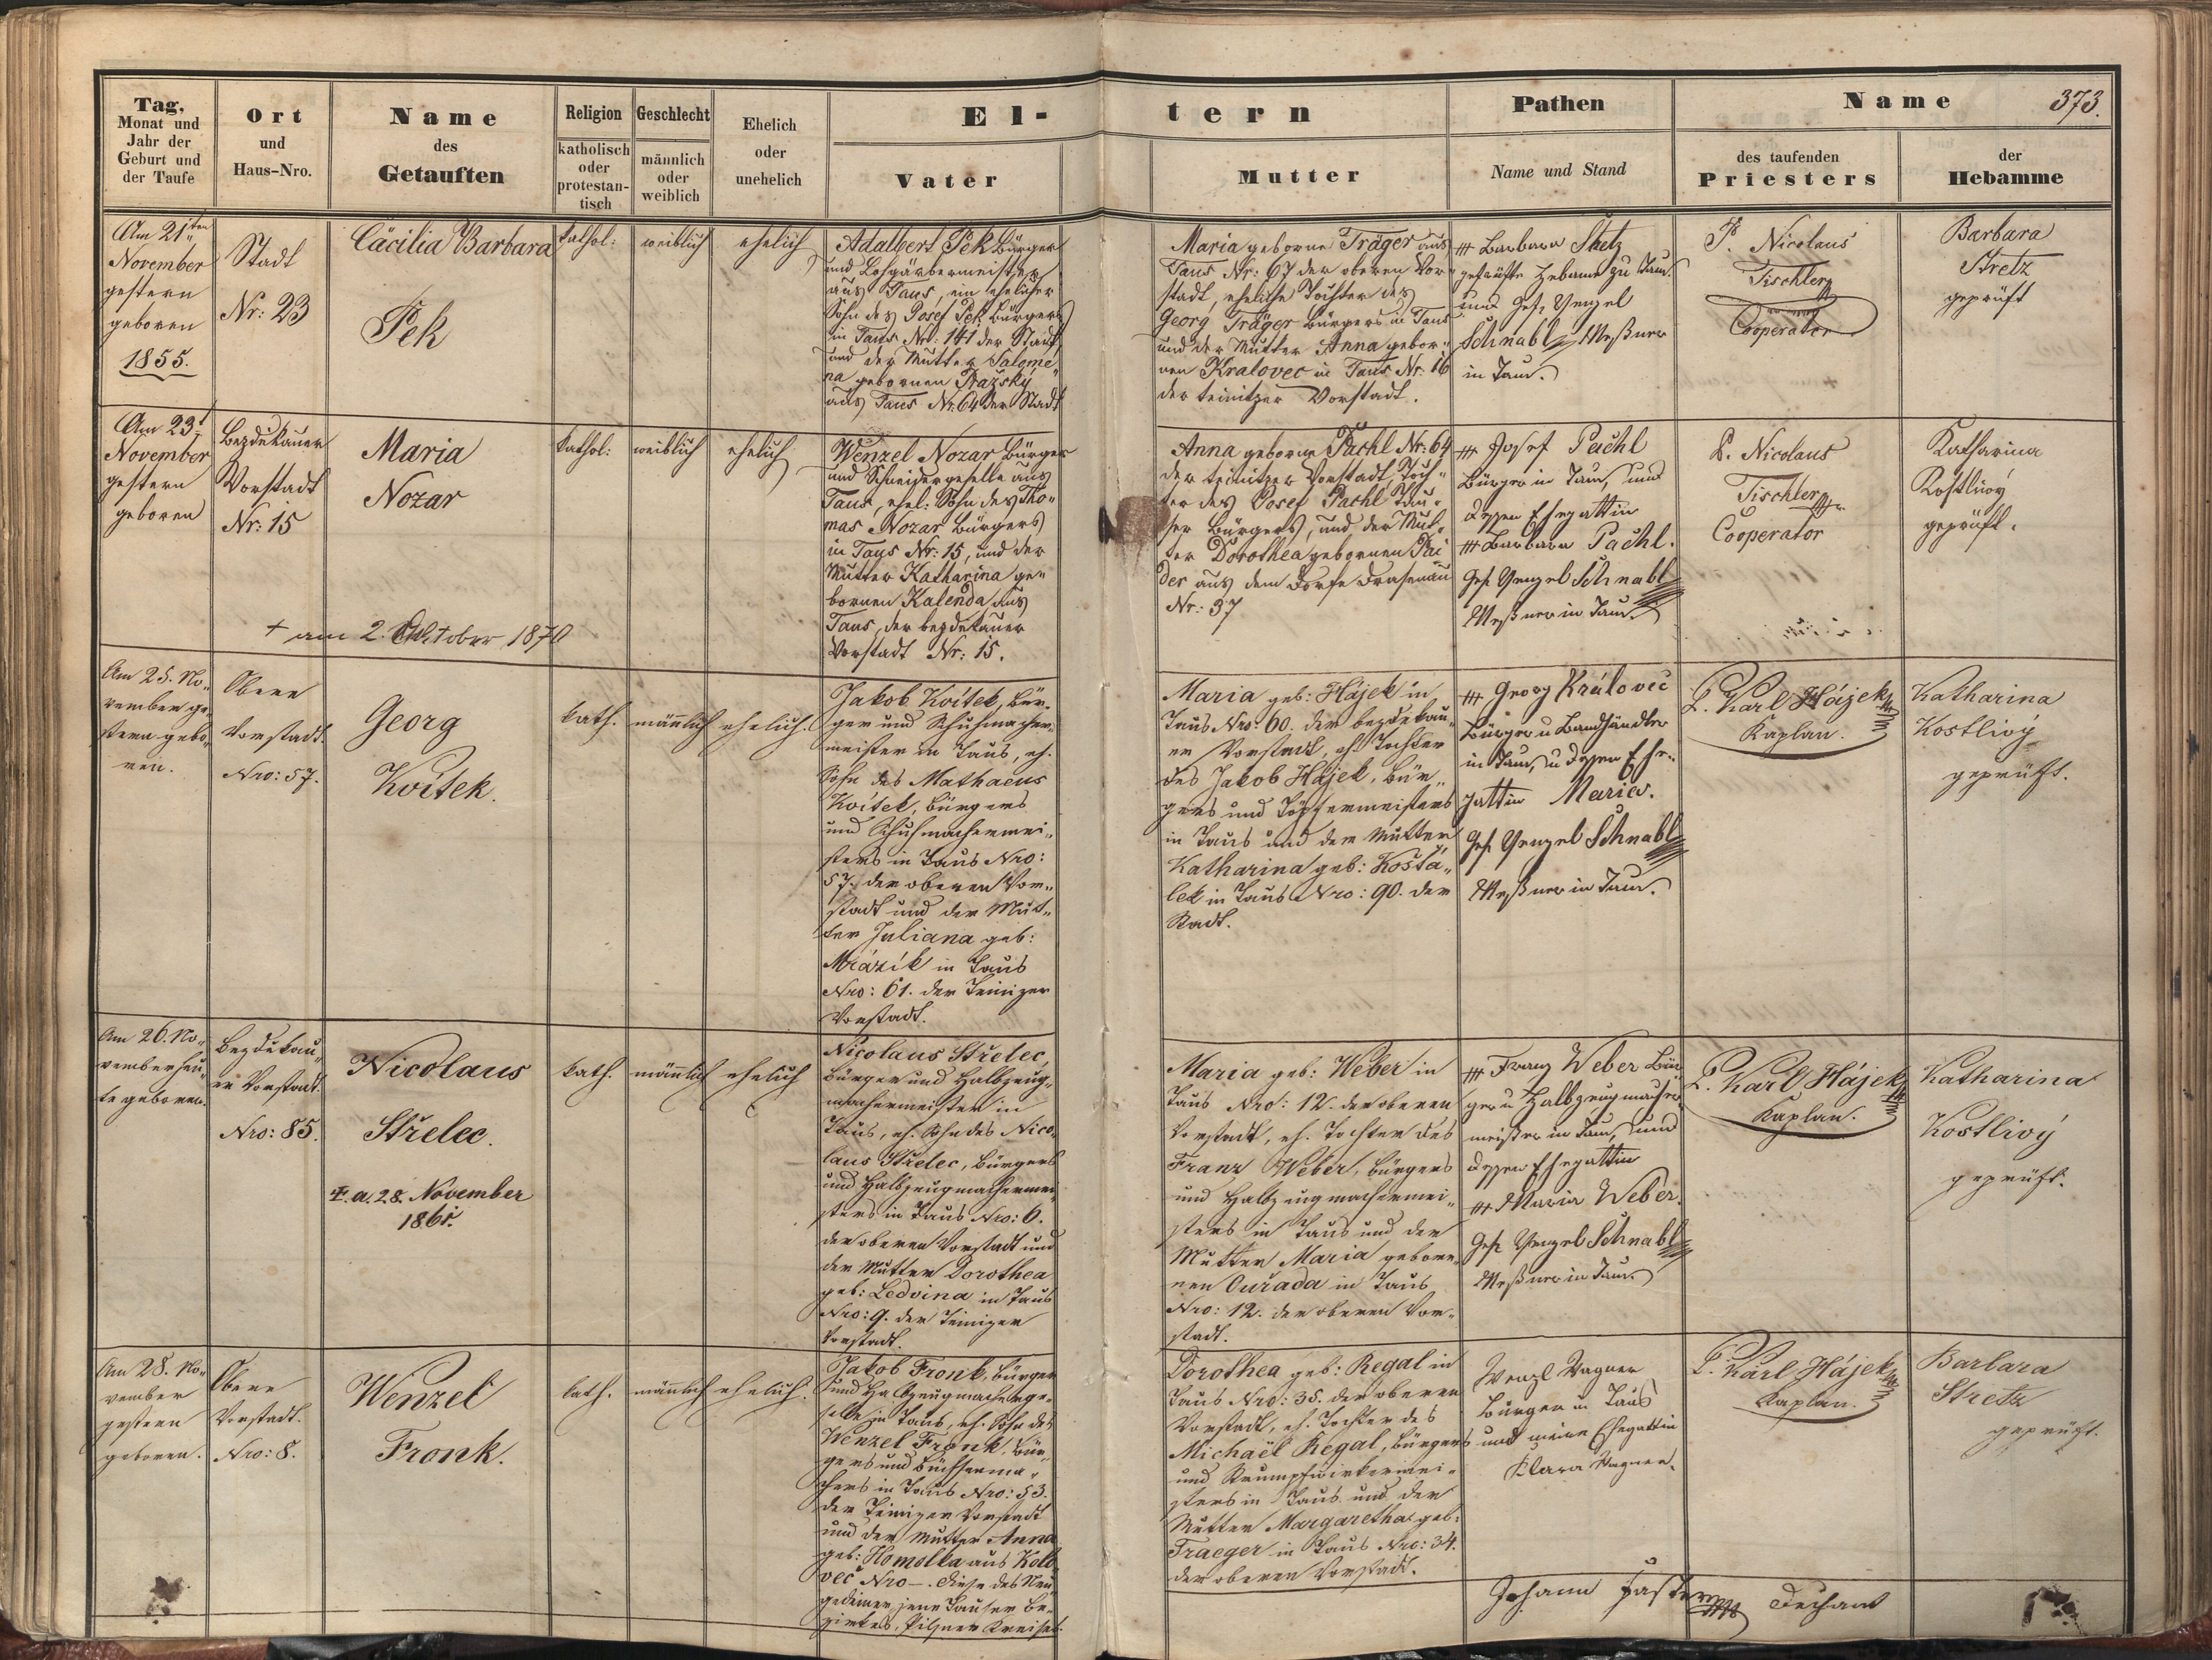 373.
Tag,
Monat und
Jahr der
Geburt und
der Taufe
Ort
und
Haus-Nro.
Name
des
Getauften
Religion
katholisch
oder
protestan-
tisch
Geschlecht
männlich
oder
weiblich
Ehelich
oder
unehelich
El-
Vater
tern
Mutter
Pathen
Name und Stand
Name
des taufenden
Priesters
der
Hebamme
Am 21ten
November
gestern
geboren
1855.
Stadt
Nr: 23
Cäcilia Barbara
Pek
kathol:
weiblich
ehelich
Adalbert Pek Bürger
und Lohgärbermeister
aus Taus, ein ehelicher
Sohn des Josef Pek Bürgers
in Taus Nr: 141 der Stadt
und der Mutter Salome„
na gebornen Pražský
aus Taus Nr. 64 der Stadt
Maria geborne Träger aus
Taus Nr: 67 der oberen Vor„
stadt, eheliche Tochter des
Georg Träger Bürgers in Taus
und der Mutter Anna gebor„
nen Kralovec in Taus Nr: 16
der teinitzer Vorstadt.
+++ Barbara Stretz
geprüfte Hebame zu Taus.
und Gef. Wenzel
Schnabl Meßner
in Taus.
P. Nicolaus
Tischler
Cooperator
Barbara
Stretz
geprüft
Am 23t
November
gestern
geboren
Bezdekauer
Vorstadt
Nr: 15
Maria
Nozar
+ am 2. Oktober 1870
kathol:
weiblich
ehelich
Wenzel Nozar Bürger
und Schneidergeselle aus
Taus, ehel: Sohn des Tho„
mas Nozar Bürgers
in Taus Nr: 15, und der
Mutter Katharina ge„
bornen Kalenda aus
Taus, der bezdekauer
Vorstadt Nr: 15.
Anna geborne Pachl Nr: 64
der teinitzer Vorstadt, Toch„
ter des Josef Pachl Tau„
ser Bürgers, und der Mut„
ter Dorothea gebornen Pai
der aus dem Dorfe Drasenau
Nr: 37
+++ Josef Pachl
Bürger in Taus, und
dessen Ehegattin
+++ Barbara Pachl.
Gef. Wenzel Schnabl
Meßner in Taus.
P. Nicolaus
Tischler
Cooperator
Katharina
Kostlivý
geprüft.
Am 25. No„
vember ge„
stern gebo„
ren.
Obere
Vorstadt.
Nro: 57.
Georg
Kvitek.
kath.
männlich
ehelich.
Jakob Kvitek, Bür„
ger und Schuhmacher„
meister in Taus, eh.
Sohn des Mathaeus
Kvitek, Bürgers
und Schuhmachermei„
sters in Taus Nro:
57. der oberen Vor„
stadt und der Mut„
ter Juliana geb:
Mrázik in Taus
Nro: 61. der Teinizer
Vorstadt.
Maria geb: Hájek in
Taus Nro: 60. der bezdekau„
er Vorstadt, eh. Tochter
des Jakob Hájek, Bür„
gers und Töpfermeisters
in Taus und der Mutter
Katharina geb: Košťá„
lek in Taus Nro: 90. der
Stadt.
+++ Georg Královec
Bürger u Bandhändler
in Taus, u dessen Ehe„
gattin Maria.
Gef. Wenzel Schnabl
Meßner in Taus.
P. Karl Hájek
Kaplan.
Katharina
Kostlivý
geprüft.
Am 26. No„
vember heu„
te geboren.
Bezdekau„
er Vorstadt.
Nro: 85.
Nicolaus
Střelec.
+. a. 28. November
1861.
kath.
männlich
ehelich
Nicolaus Střelec,
Bürger und Halbzeug„
machermeister in
Taus, eh. Sohn des Nico„
laus Střelec, Bürgers
und Halbzeugmachermei„
sters in Taus Nro: 6.
der oberen Vorstadt und
der Mutter Dorothea
geb: Ledvina in Taus
Nro: 9. der Teinizer
Vorstadt.
Maria geb: Weber in
Taus Nro: 12. der oberen
Vorstadt, eh. Tochter des
Franz Weber, Bürgers
und Halbzeugmachermei„
sters in Taus und der
Mutter Maria gebore„
nen Ouřada in Taus
Nro: 12. der oberen Vor„
stadt.
+++ Franz Weber Bür
ger u Halbzeugmacher
meister in Taus, und
dessen Ehegattin
+++ Maria Weber.
Gef. Wenzel Schnabl
Meßner in Taus.
P. Karl Hájek
Kaplan.
Katharina
Kostlivý
geprüft.
Am 28. No„
vember
gestern
geboren.
Obere
Vorstadt.
Nro: 8.
Wenzel
Fronk.
kath.
männlich
ehelich.
Jakob Fronk, Bürger
und Halbzeugmacherge„
selle in Taus, eh. Sohn des
Wenzel Fronk, Bür„
gers und Büchsenma„
chers in Taus Nro: 53.
der Teinizer Vorstadt
und der Mutter Anna
geb: Homolka aus Kolo
več Nro —. diese des Neu„
gedeiner jene Tauser Be„
zirkes, Pilsner Kreises.
Dorothea geb: Regal in
Taus Nro: 35. der oberen
Vorstadt, eh. Tochter des
Michaël Regal, Bürgers
und Strumpfwirkermei„
sters in Taus und der
Mutter Margaretha geb:
Traeger in Taus Nro: 34.
der oberen Vorstadt.
Wenzl Wagner
Bürger in Taus
und meine Ehegattin
Klara Wagner.
P. Karl Hájek
Kaplan.
Barbara
Stretz
geprüft.
Johann Dechant